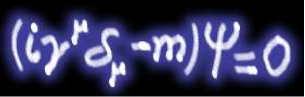 (iγ^μ δ_μ - m)Ψ = 0